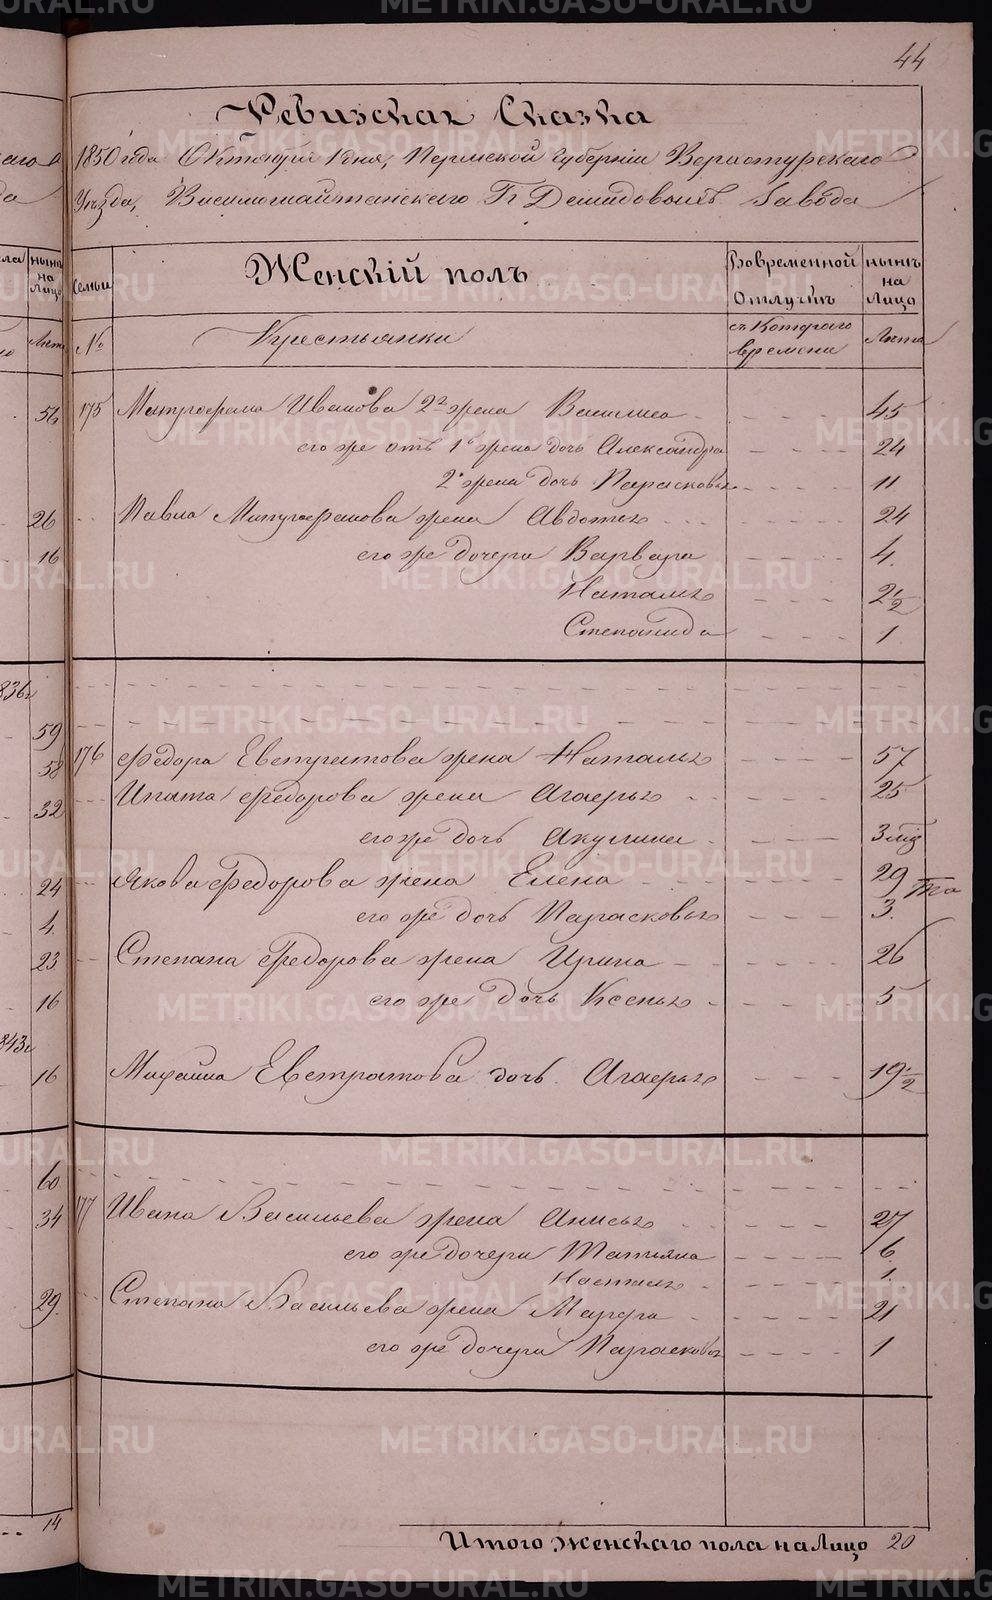 44
Ревизская Сказка
1850 года Октября 1 дня, Пермской губерніи Верхотурскаго
Уѣзда, Висимошайтанскаго Гг Демидовыхъ Завода
семьи
Женскій полъ
Во временной Отлучкѣ
нынѣ на Лицо
№
Крестьянки
съ Котораго времени
Лѣта
175 Митрофана Иванова 2я жена Василиса - - - - 45
его же отъ 1й жена дочь Александра - - - - 24
2й жена дочь Парасковья - - - - 11
Павла Митрофанова жена Авдотья - - - - 24
его же дочери Варвара - - - - 4.
Наталья - - - - 2 1/2
Степанида - - - - 1
176 Федора Евстратова жена Наталья - - - - 57
Ипата Федорова жена Агафья - - - - 25
его же дочь Акулина - - - 3 мѣс
Якова Федорова жена Елена - - - - 29
его же дочь Парасковья - - - - 3.
Степана Федорова жена Ирина - - - - 26
его же дочь Ксенья - - - - 5
Михайла Евстратова дочь Агафья - - - - 19 1/2
177 Ивана Васильева жена Анисья - - - - 27
его же дочери Татьяна - - - - 6
Насталья - - - - 1
Степана Васильева жена Марфа - - - - 21
его же дочери Парасковья - - - - 1
Итого Женскаго пола на Лицо 20
56
26
16
836г
59
58
32
24
4.
23
16
843г
16
60
34
29.
14
METRIKI.GASO-URAL.RU